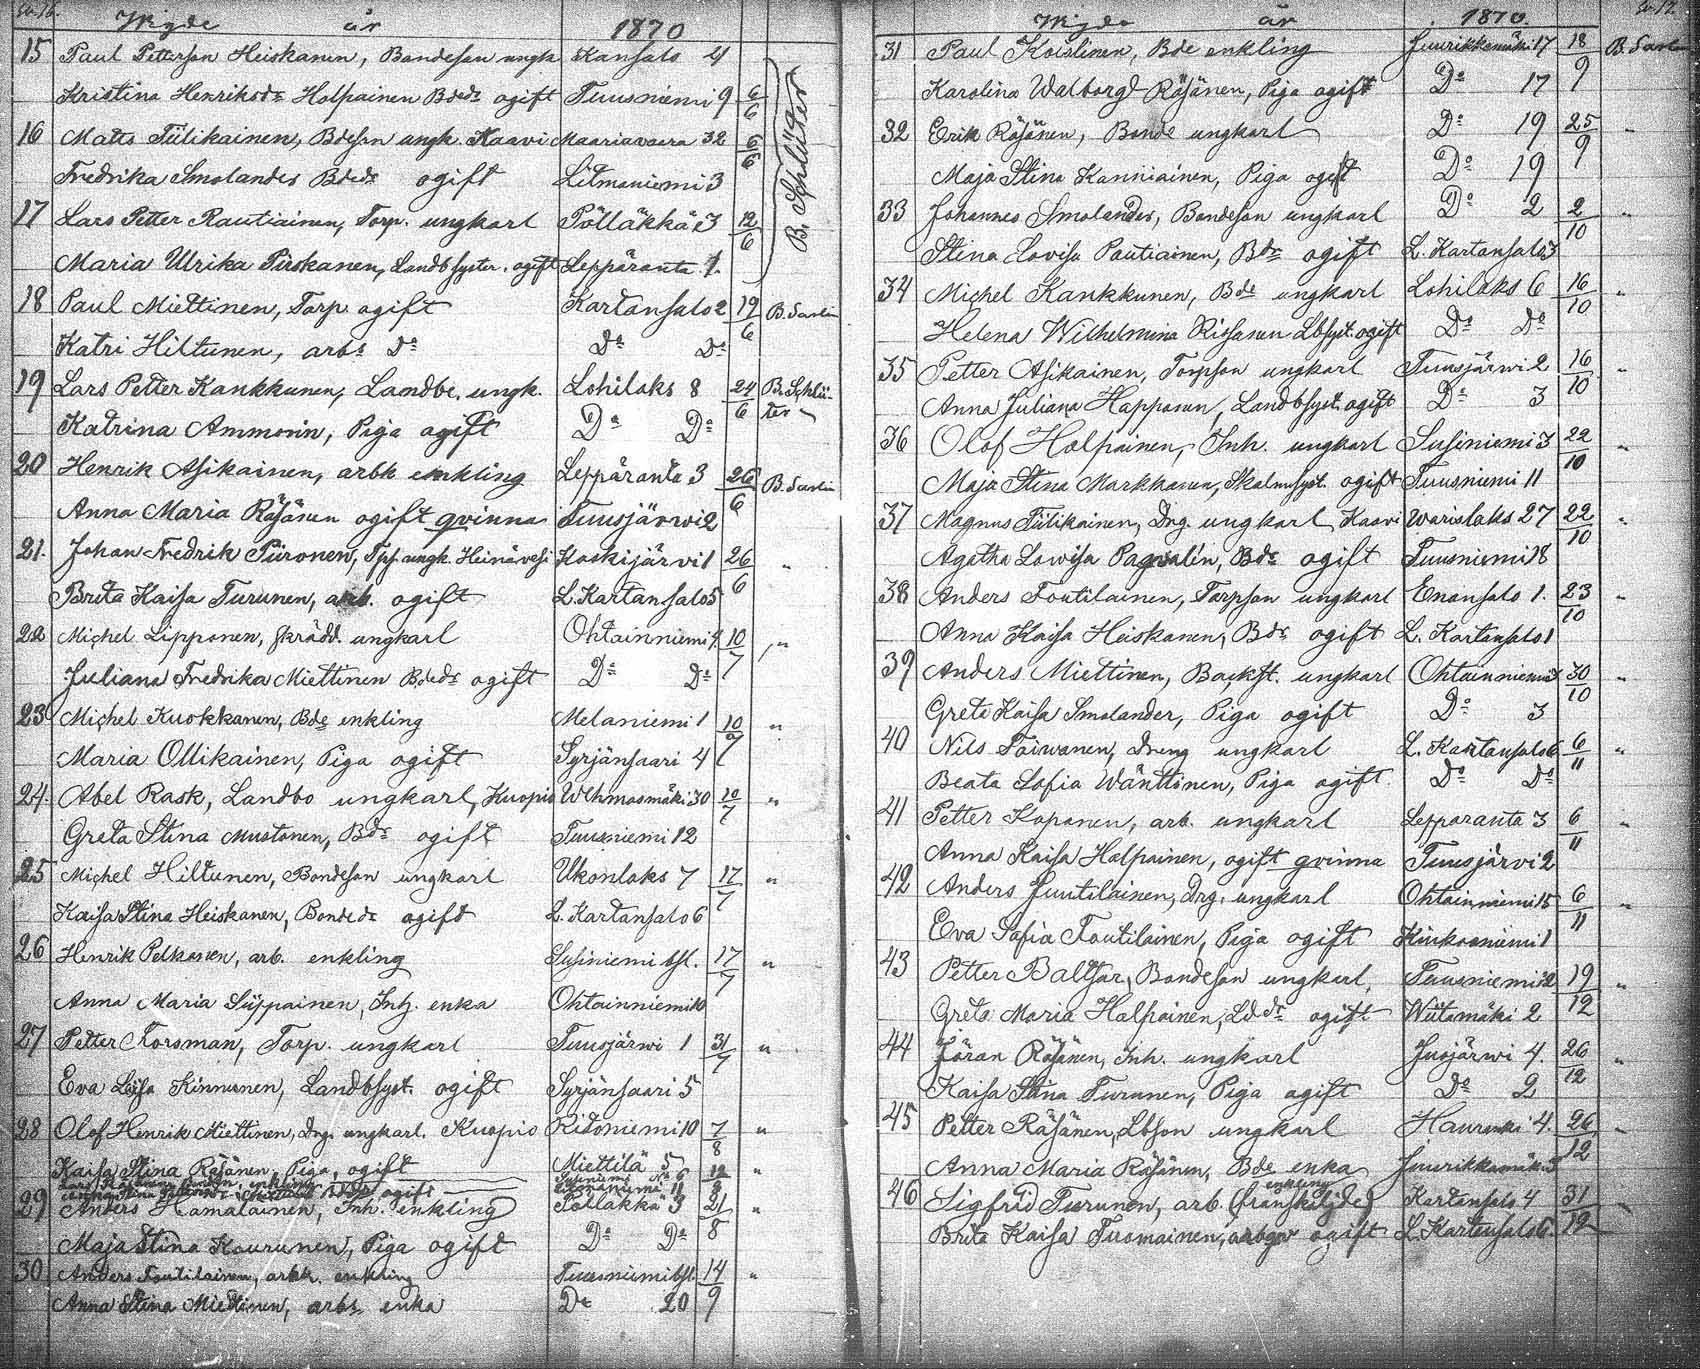 Wigde år 1870
15 Paul Petterson Heiskanen, Bondeson ungk Kansalo 4
Kristina Henriksdr Halpainen Bdedr ogift Tuusniemi 9 6/6
16 Matts Tiilikainen, Bdeson ungk. Kaavi Maariavaara 32 6/6
Fredrika Smolander Bdedr ogift Litmaniemi 3
B. Schlüter
17 Lars Petter Rautiainen, Torp. ungkarl Pölläkkä 3 12/6
Maria Ulrika Pirskanen, Landbsyster. ogift Leppäranta 1.
18 Paul Miettinen, Torp. ogift Kartansalo 2 19/6 B. Sarlin
Katri Hiltunen, arbr Do Do Do
19 Lars Petter Kankkunen, Landbo. ungk. Lohilaks 8 24/6 B. Schlüter
Katrina Ammorin, Piga ogift Do Do
20 Henrik Asikainen, arbk enkling Leppäranta 3 26/6 B. Sarlin
Anna Maria Räsänen ogift qvinna Tuusjärwi 2
21. Johan Fredrik Piironen, Tpp. ungk. Heinävesi Koskijärvi 1 26/6 "
Brita Kaisa Turunen, arb. ogift L. Kartansalo 5
22 Michel Lipponen, skrädd. ungkarl Ohtainniemi 4. 10/7 "
Juliana Fredrika Miettinen Bdedr ogift Do Do
23 Michel Kuokkanen, Bde enkling Melaniemi 1 10/7 "
Maria Ollikainen, Piga ogift Syrjänsaari 4
24. Abel Rask, Landbo ungkarl, Kuopio Wehmasmäki 30 10/7 "
Greta Stina Mustonen, Bdr ogift Tuusniemi 12
25 Michel Hiltunen, Bondeson ungkarl Ukonlaks 7 17/7 "
Kaisa Stina Heiskanen, Bondedr ogift L. Kartansalo 6
26 Henrik Pelkonen, arb. enkling Susiniemi bst. 17/7 "
Anna Maria Siippainen, Inh. enka Ohtainniemi 10
27 Petter Korsman, Torp. ungkarl Tuusjärwi 1 31/7 "
Eva Lisa Kinnunen, Landbsyst. ogift Syrjänsaari 5
28 Olof Henrik Miettinen, Drg. ungkarl. Kuopio Ritoniemi 10 7/8 "
Kaisa Stina Räsänen Piga, ogift Miettilä 5
29 Anders Hämäläinen, Inh. enkling Pölläkkä 3 21/8 "
Maja Stina Kaurunen, Piga ogift Do Do
30 Anders Toutilainen, arbk. enkling Tuusniemi bst. 14/9 "
Anna Stina Miettinen, arbr enka Do 20
Wigde år 1870.
31 Paul Koistinen, Bde enkling Juurikkamäki 17 18/9 B. Sarlin
Karolina Walborgd Räsänen, Piga ogift Do 17
32 Erik Räsänen, Bonde ungkarl Do 19 25/9 "
Maja Stina Kanniainen, Piga ogift Do 19
33 Johannes Smolander, Bondeson ungkarl Do 2 2/10 "
Stina Lovisa Pautiainen, Bdr ogift L. Kartansalo 3
34 Michel Kankkunen, Bde ungkarl Lohilaks 6 16/10 "
Helena Wilhelmina Rissanen Lbsyst. ogift Do Do
35 Petter Asikainen, Torpson ungkarl Tuusjärwi 2 16/10 "
Anna Juliana Happonen, Landbsyst. ogift Do 3
36 Olof Halpainen, Inh. ungkarl Susiniemi 3 22/10 "
Maja Stina Markkanen, Skalmsyst. ogift Tuusniemi 11
37 Magnus Tiilikainen, Drg. ungkarl, Kaavi Warislaks 27 22/10 "
Agatha Lowisa Pagvalén, Bdr ogift Tuusniemi 18
38 Anders Toutilainen, Torpson ungkarl Enonsalo 1. 23/10 "
Anna Kaisa Heiskanen, Bdr ogift L. Kartansalo 1
39 Anders Miettinen, Backst. ungkarl Ohtainniemi 3 30/10 "
Greta Kaisa Smolander, Piga ogift Do 3
40 Nils Taiwanen, Dreng ungkarl L. Kartansalo 6 6/11 "
Beata Sofia Wänttinen, Piga ogift Do Do
41 Petter Koponen, arb. ungkarl Lepparanta 3 6/11 "
Anna Kaisa Halpainen, ogift qvinna Tuusjärvi 2
42 Anders Juutilainen, Drg. ungkarl Ohtainniemi 15 6/11 "
Eva Sofia Toutilainen, Piga ogift Kinkooniemi 1
43 Petter Baltsar, Bondeson ungkarl, Tuusniemi 12 19/12 "
Greta Maria Halpainen, Lddr ogift Wiitamäki 2
44 Jöran Räsänen, Inh. ungkarl Jusjärwi 4. 26/12 "
Kaisa Stina Turunen, Piga ogift Do 2
45 Petter Räsänen, Lbson ungkarl Hauranki 4. 26/12 "
Anna Maria Räsänen, Bde enka Juurikkamäki 3
46 Sigfrid Turunen, arb. enkling (frånskiljde) Kartansalo 4 31/12 "
Brita Kaisa Tuomainen, ogift L. Kartansalo 6.